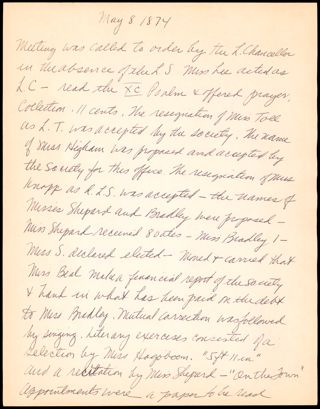 May 8 1874
Meeting was called to order by the L. Chancellor
in the absence of the L.S. Miss Lee acted as
L.C - read the XC Psalm & offered prayer.
Collection. 11 cents. The resignation of Miss Toll
as L.T. was accepted by the society. The name
of Miss Higham was proposed and accepted by
the society for this office. The resignation of Miss
Knapp as R.L.S. was accepted - the names of
Misses Shepard and Bradley were proposed -
Miss Shepard received 8 votes - Miss Bradley 1 -
Miss S. declared elected - Moved & carried that
Miss Beal make a financial report of the society
& hand in what has been paid on the debt
to Miss Bradley. Mutual correction was followed
by singing. Literary exercises consisted of a
selection by Miss Hogoboom. "5 ft 11 in"
and a recitation by Miss Shepard - "On the Town"
Appointments were a paper to be read